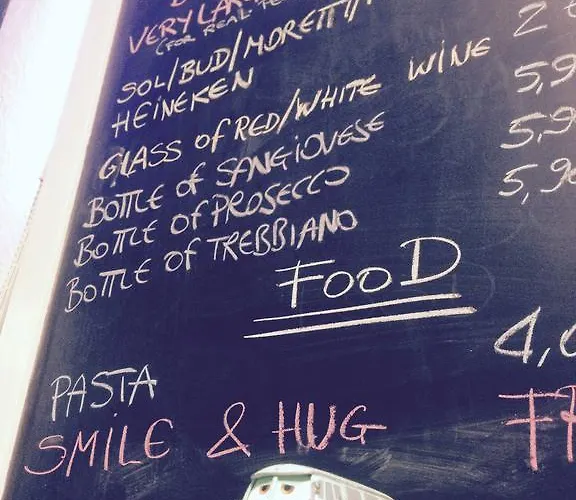 VERY LAR
(FOR REAL
SOL/BUD/MORETTI/
HEINEKEN
GLASS OF RED/WHITE WINE 2
BOTTLE OF SANGIOVESE 5,9
BOTTLE OF PROSECCO 5,9
BOTTLE OF TREBBIANO 5,9
FOOD
PASTA 4,
SMILE & HUG FR